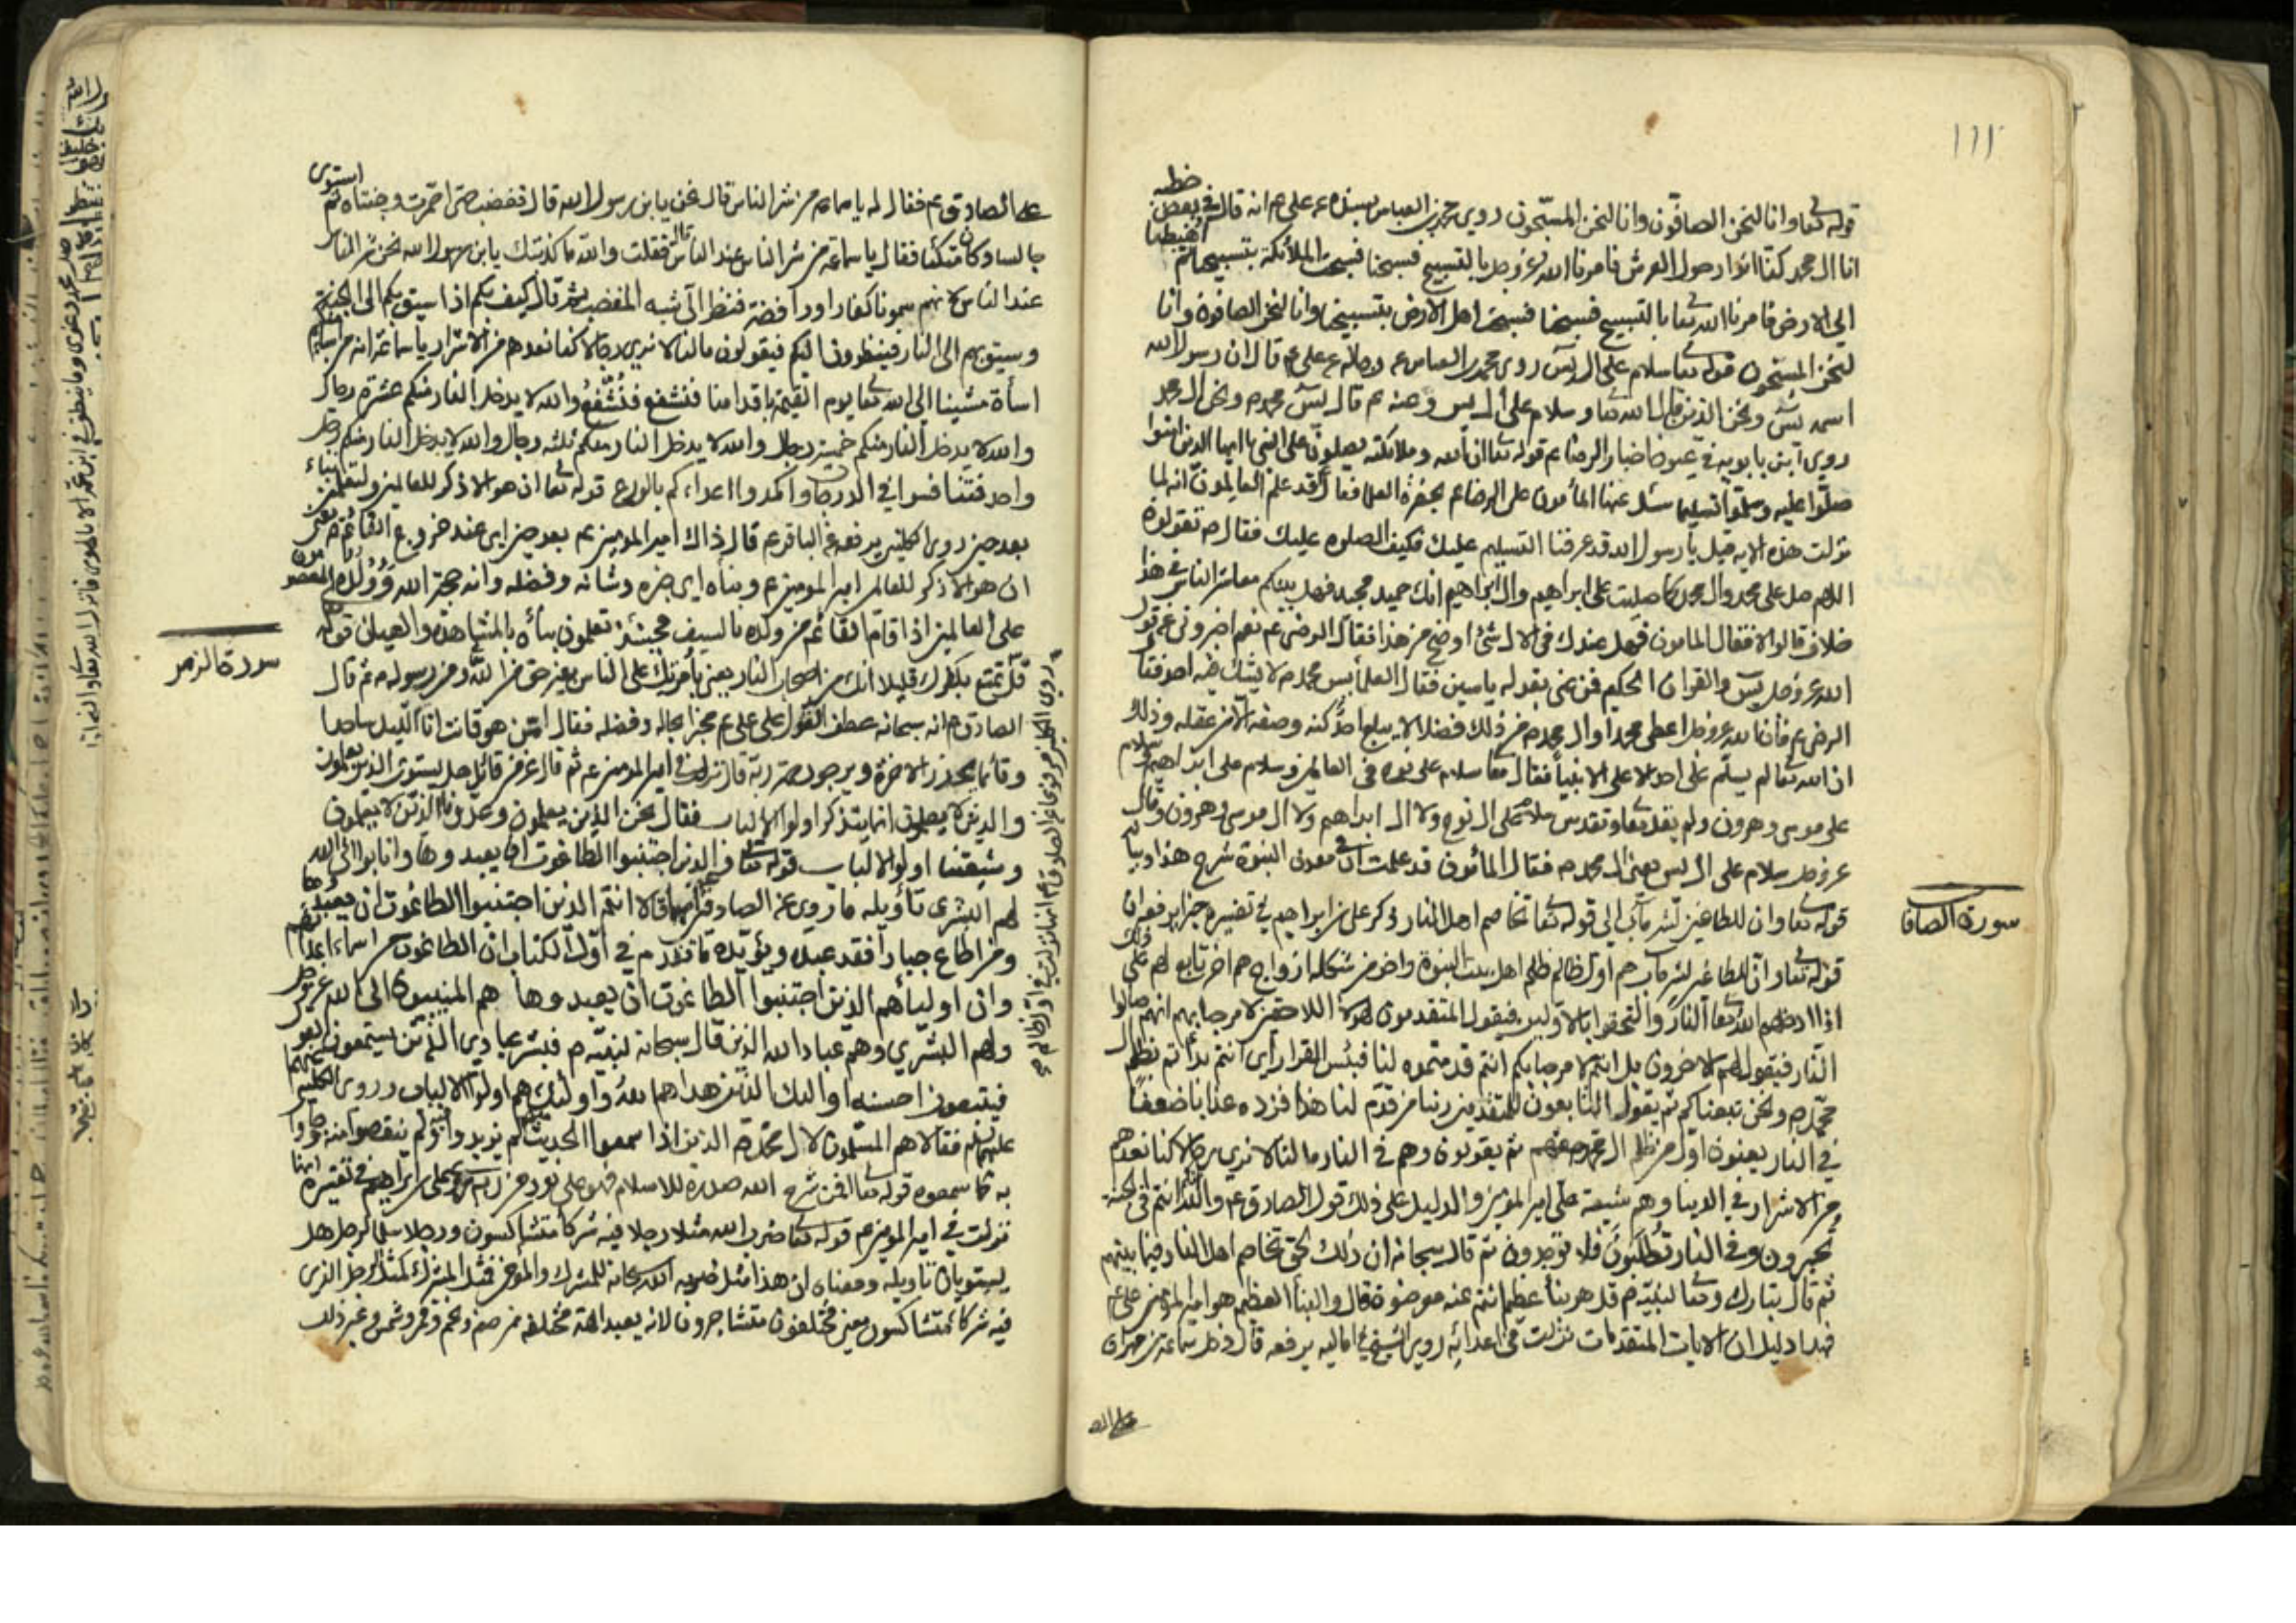 ١١١
قوله تعا وانا لنحن الصافّون وانا لنحن المسبّحون روى محمد بن العباس بسنده عن علي م انه قال في بعض خطبه
انا ال محمد كنّا انوارا حول العرش فامرنا الله عز وجل بالتسبيح فسبحنا فسبحت الملائكة بتسبيحنا ثم اهبطنا
الى الارض فامرنا الله تعا بالتسبيح فسبحنا فسبحت اهل الارض بتسبيحنا وانا لنحن الصافون وانا
لنحن المسبحون قوله تعا سلام على ال يس روى محمد بن العباس عن رجاله عن علي ع قال ان رسول الله
اسمه يس ونحن الذين قال الله تعا وسلام على ال يس وعنه م قال يس محمد م ونحن ال محمد
روى ابن بابويه في عيون اخبار الرضا ع م قوله تعا ان الله وملائكته يصلون على النبي يا ايها الذين امنوا
صلّوا عليه وسلّموا تسليما سئل عنها المأمون علي الرضا ع بحضرة العلما فقال قد علم العالمون انه لما
نزلت هذه الاية قيل يا رسول الله قد عرفنا التسليم عليك فكيف الصلوة عليك فقال م تقولون
اللهم صل على محمد وال محمد كما صليت على ابراهيم وال ابراهيم انك حميد مجيد فهل بينكم معاشر الناس في هذا
خلاف قالوا لا فقال المامون فهل عندك في الال شئ اوضح من هذا فقال الرضي ع نعم اخبروني عن قول
الله عز وجل يس والقران الحكيم فمن عنى بقوله ياسين فقال العلما يس محمد م لا يشك فيه احد فقال
الرضي ع فان الله عز وجل اعطى محمدا وال محمد م من ذلك فضلا لا يبلغ احد كنه وصفه الا من عقله وذلك
ان الله تعا لم يسلّم على احد الا على الانبيا فقال تعا سلام على نوح في العالمين وسلام على ابراهيم سلام
على موسى وهرون ولم يقل تعا وتقدس سلام على ال نوح ولا ال ابراهيم ولا ال موسى وهرون وقال
عز وجل سلام على ال يس يعني ال محمد م فقال المأمون قد علمت ان في معدن النبوة شرح هذا وبيانه
سورة الصافا
قوله تعا وان للطاغين لشر مآب الى قوله تعا تخاصم اهل النار ذكر علي بن ابراهيم في تفسيره
قوله تعا وان للطاغين لشر مآب هم اول ظالم ظلم اهل بيت النبوة واخر من شكله ازواج هم اخر تابع لهم على ذلك
اذا ادخلهم الله تعا النار والتحقوا بالاولين فيقول المتقدمون لهؤلا اللاحقين لا مرحبا بهم انهم صالوا
النار فيقول لهم الاخرون بل انتم لا مرحبا بكم انتم قدمتموه لنا فبئس القرار اي انتم بدأتم بظلم ال
محمد م ونحن تبعناكم ثم يقول التابعون للمتقدمين ربنا من قدّم لنا هذا فزده عذابا ضعفا
في النار يعنون اول من ظلم ال محمد م ثم يقولون وهم في النار ما لنا لا نرى رجالا كنا نعدهم
من الاشرار في الدنيا وهم شيعة علي امير المؤمنين والدليل على ذلك قول الصادق ع م والله انتم في الجنة
تحبرون وفي النار تُطلَبُونَ فلا توجدون ثم قال سبحانه ان ذلك لحق تخاصم اهل النار فيما بينهم
ثم قال تبارك وتعا لنبيّه م قل هو نبأ عظيم انتم عنه معرضون قال والنبأ العظيم هو امير المؤمنين علي ع
فهذا دليل ان الايات المتقدمات نزلت في اعدائه روى الشيخ في اماليه يرفعه قال دخل سماعة بن مهران
على الص
على الصادق ع م فقال له يا سماعة من شر الناس قال نحن يا بن رسول الله قال فغضب حتى احمرت وجنتاه ثم استوى
جالسا وكان متكئا فقال يا سماعة من شر الناس عند الناس قال فقلت والله ما كذبتك يا بن رسول الله نحن شر الناس
عند الناس لانهم سمونا كفارا ورافضة فنظر الى شبه المغضب ثم قال كيف بكم اذا سيق بكم الى الجنة
وسيق بهم الى النار فينظرون اليكم فيقولون ما لنا لا نرى رجالا كنا نعدهم من الاشرار يا سماعة انه من اساء منكم
اسأة مشينا الى الله تعا يوم القيمة باقدامنا فنشفع فنُشَفَّعُ والله لا يدخل النار منكم عشرة رجال
والله لا يدخل النار منكم خمسة رجال والله لا يدخل النار منكم ثلثه رجال والله لا يدخل النار منكم رجل
واحد فتنافسوا في الدرجات واكمدوا اعداءكم بالورع قوله تعا ان هو الا ذكر للعالمين ولتعلمن نباءه
بعد حين روى الكليني يرفعه عن الباقر ع قال ذاك امير المومنين ع م بعد حين اي عند خروج القائم ع م يعني
ان هو الا ذكر للعالمين امير المومنين ع ونباه اي خبره وشانه وفضله وانه حجة الله وَوُلْدُه المعصومون
على العالمين اذا قام القائم من ولده بالسيف فحينئذ تعلمون نبأه بالمشاهدة والعيان قوله تعا
سورة الزمر
قل تمتع بكفرك قليلا انك من اصحاب النار يعني بأمرتك على الناس بغير حق من الله ومن رسوله م ثم قال
الصادق م انه سبحانه عطف القول على علي ع مخبرا بحاله وفضله فقال امّن هو قانت اناء الليل ساجدا
وقائما يحذر الاخرة ويرجو رحمة ربّه قال نزلت في امير المومنين ع م ثم قال عز من قائل هل يستوى الذين يعلمون
والذين لا يعلمون انما يتذكر اولوا الالباب فقال نحن الذين يعلمون وعدونا الذين لا يعلمون
وشيعتنا اولوا الالباب قوله تعا والذين اجتنبوا الطاغوت ان يعبدوها وانابوا الى الله
لهم البشرى تأويله ما روى عن الصادق قال انتم الذين اجتنبوا الطاغوت ان يعبدوها
ومن اطاع جبارا فقد عبده ويؤيده ما تقدم في اول الكتاب ان الطاغوت من اسماء اعدائهم
وان اوليأهم الذين اجتنبوا الطاغوت ان يعبدوها هم المنيبون الى الله عز وجل
ولهم البشري وهم عباد الله الذين قال سبحانه لنبيّه م فبشر عبادي الذين يستمعون القول
فيتبعون احسنه اولئك الذين هداهم الله واولئك هم اولوا الالباب وروى الكليني
عليهما فقالا هم المسلمون لال محمّد م الذين اذا سمعوا الحديث لم يزيدوا فيه ولم ينقصوا منه وجاوا
به كما سمعوه قوله تعا افمن شرح الله صدره للاسلام فهو على نور من ربه علي بن ابراهيم في تفسيره انها
نزلت في امير المومنين ع م قوله تعا ضرب الله مثلا رجلا فيه شركأ متشاكسون ورجلا سلما لرجل هل
يستويان تاويله ومعناه ان هذا مثل ضربه الله سبحانه للمشرك والمؤمن فمثل المشرك كمثل الرجل الذي
فيه شركاء متشاكسون يعني مختلفون متشاجرون لانه يعبد الهة مختلفة من صنم ونجم وقمر وشمس وغير ذلك